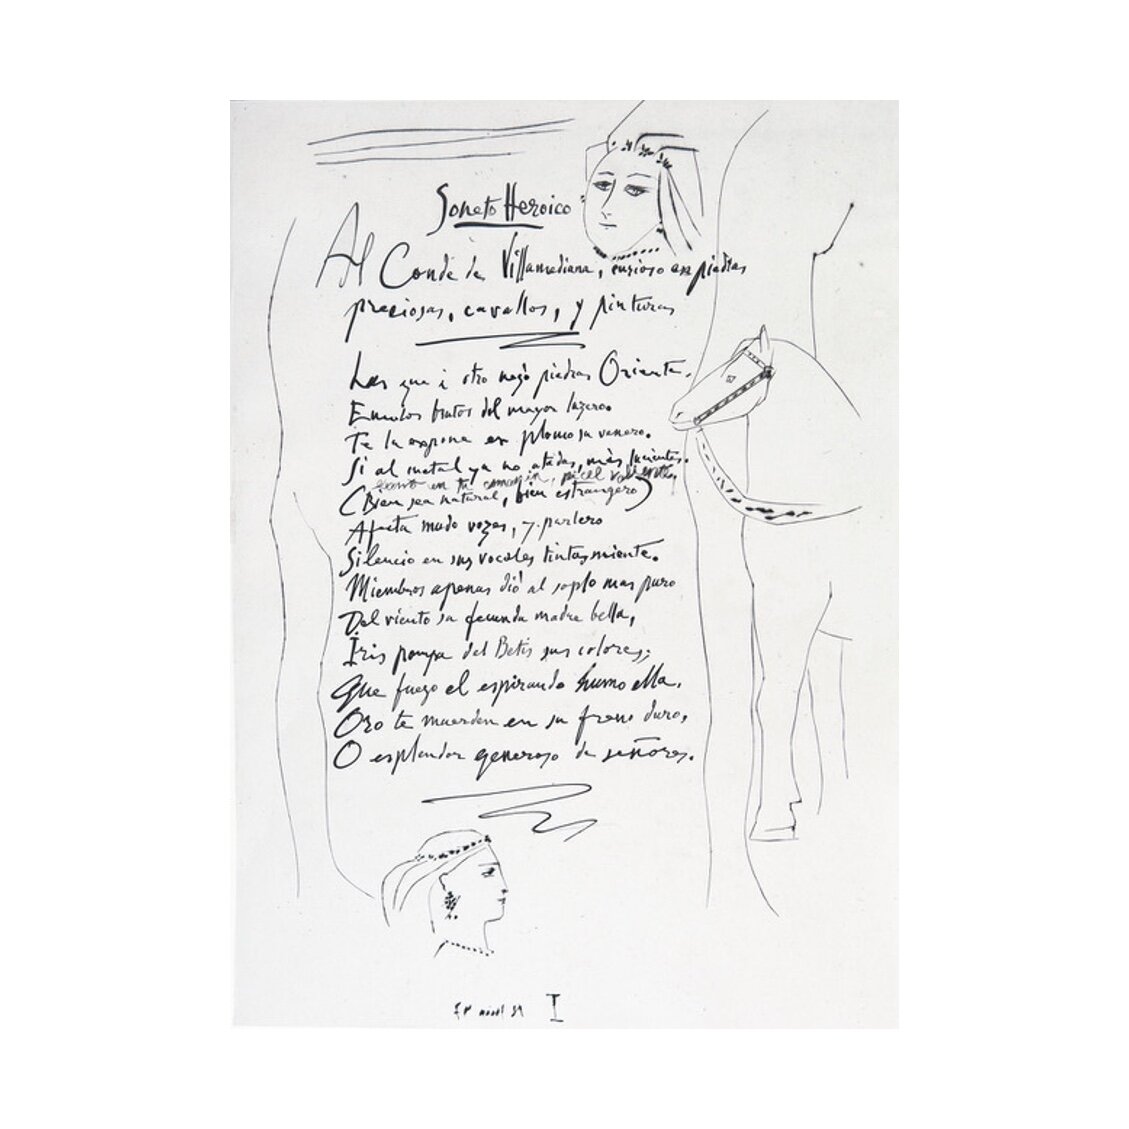 Soneto Heroico
Al Conde de Villamediana, curioso en piedras
preciosas, cavallos, y pinturas
Las que à otro negò piedras Oriente.
Emulos brutos del mayor luzero.
Te la expone en plomo su venero.
Si al metal ya no atadas, mas luzientes.
quanto en tu camarin, pincel valiente,
(Bien sea natural, bien estrangero)
Afecta mudo vozes, y parlero
Silencio en sus vocales tintas miente.
Miembros apenas diò al soplo mas puro
Del viento su fecunda madre bella,
Iris pompa del Betis sus colores;
Que fuego el espirando humo ella.
Oro te muerden en su freno duro,
O esplendor generoso de señores.
I